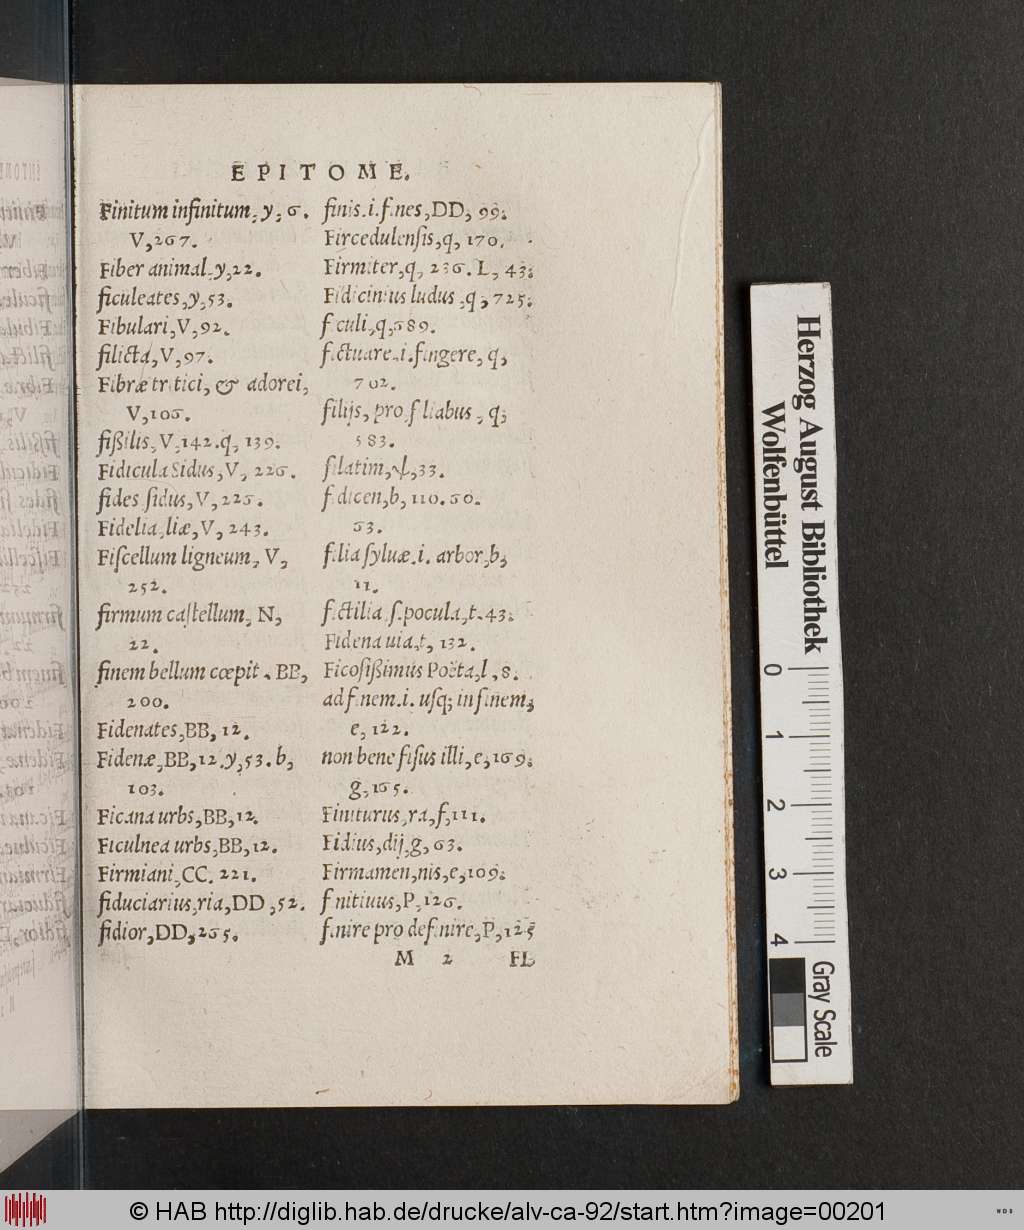 EPITOME.
Finitum infinitum, y, 6.
V, 267.
Fiber animal, y, 22.
ficuleates, y, 53.
Fibulari, V, 92.
filicta, V, 97.
Fibræ tritici, & adorei,
V, 106.
fißilis, V, 142. q, 139.
Fidicula Sidus, V, 226.
fides sidus, V, 226.
Fidelia, liæ, V, 243.
Fiscellum ligneum, V,
252.
firmum castellum, N,
22.
finem bellum cœpit. BB,
200.
Fidenates, BB, 12.
Fidenæ, BB, 12. y, 53. b,
103.
Ficana urbs, BB, 12.
Ficulnea urbs, BB, 12.
Firmiani, CC. 221.
fiduciarius, ria, DD, 52.
fidior, DD, 265.
finis. i. fines, DD, 99.
Fircedulensis, q, 170.
Firmiter, q, 236. L, 43.
Fidicinius ludus, q, 725.
ficuli, q, 689.
fictuare. i. fingere, q,
702.
filijs, pro filiabus, q,
583.
filatim, ψ, 33.
fidicen, b, 110. 60.
63.
filia syluæ. i. arbor, b,
11.
fictilia, s. pocula, t. 43.
Fidena uia, t, 132.
Ficosißimus Poëta, l, 8.
ad finem. i. usq; in finem,
e, 122.
non bene fisus illi, e, 169.
g, 165.
Finiturus, ra, f, 111.
Fidius, dij, g, 63.
Firmamen, nis, e, 109.
finitiuus, P, 126.
finire pro definire, P, 125
M 2 FL
Herzog August Bibliothek
Wolfenbüttel
0 1 2 3 4
Gray Scale
© HAB http://diglib.hab.de/drucke/alv-ca-92/start.htm?image=00201